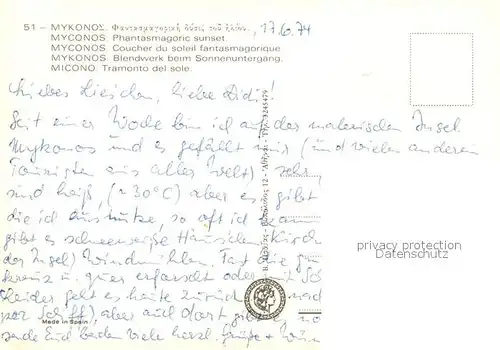 51 – ΜΥΚΟΝΟΣ. Φαντασμαγορική δύσις τοῦ ἡλίου. , 17.6.74
MYCONOS. Phantasmagoric sunset.
MYCONOS. Coucher du soleil fantasmagorique
MYKONOS. Blendwerk beim Sonnenuntergang.
MICONO. Tramonto del sole.
Liebes Lieschen, liebe Didi!
Seit einer Woche bin ich auf der malerischen Insel
Mykonos und es gefällt mir (und vielen anderen
Touristen aus aller Welt) sehr,
sind heiß, (~30°C) aber es gibt
die ich ausnütze, so oft ich kann
gibt es schneeweiße Häuschen
der Insel) Windmühlen. Fast die
kreuz u. quer erforscht oder mit
Leider geht es heute zurück
per Schiff) aber auch dort gibt
Euch beiden viele herzl. Grüße +
privacy protection
Datenschutz
Made in Spain